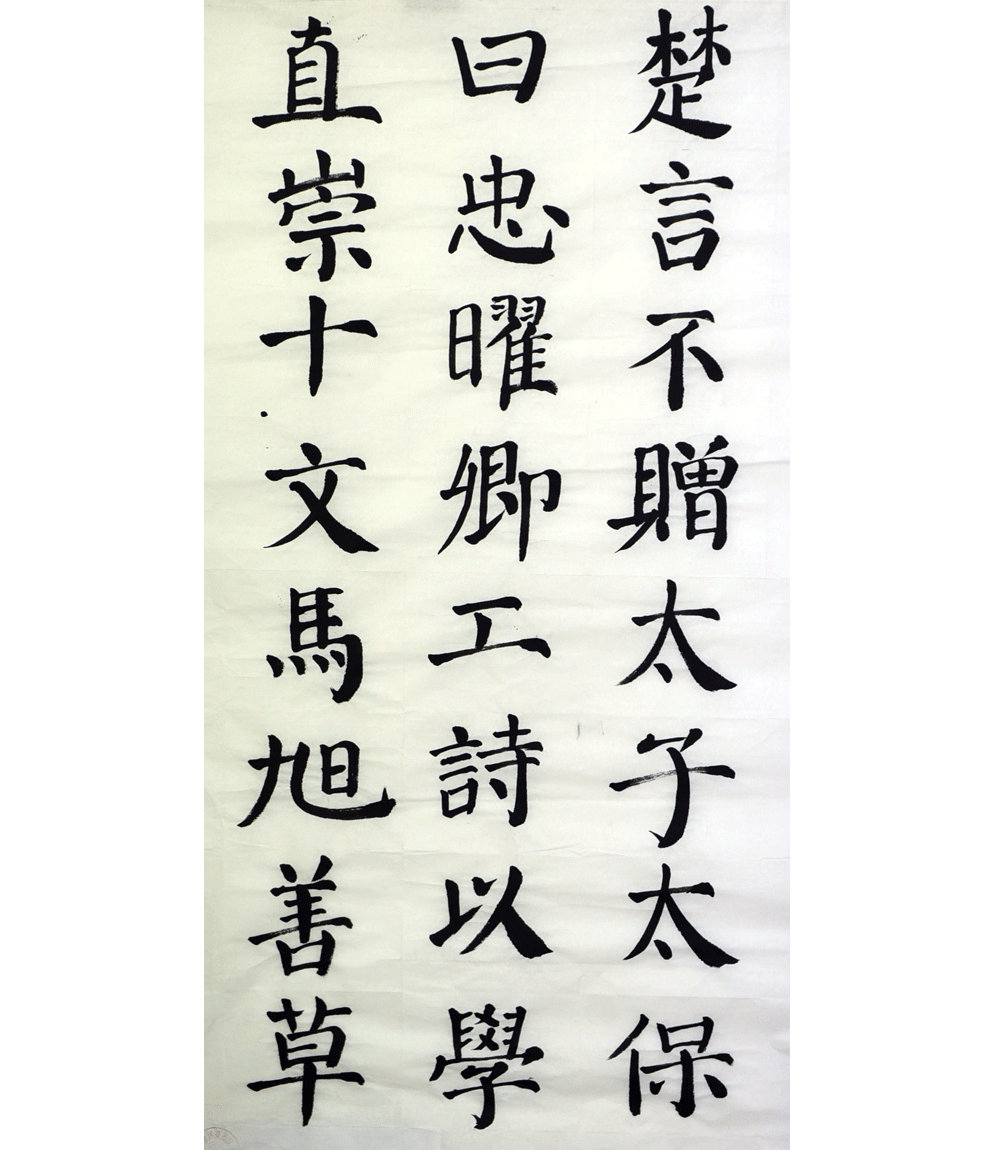 楚言不贈太子太保
曰忠曜卿工詩以學
直崇十文馬旭善草